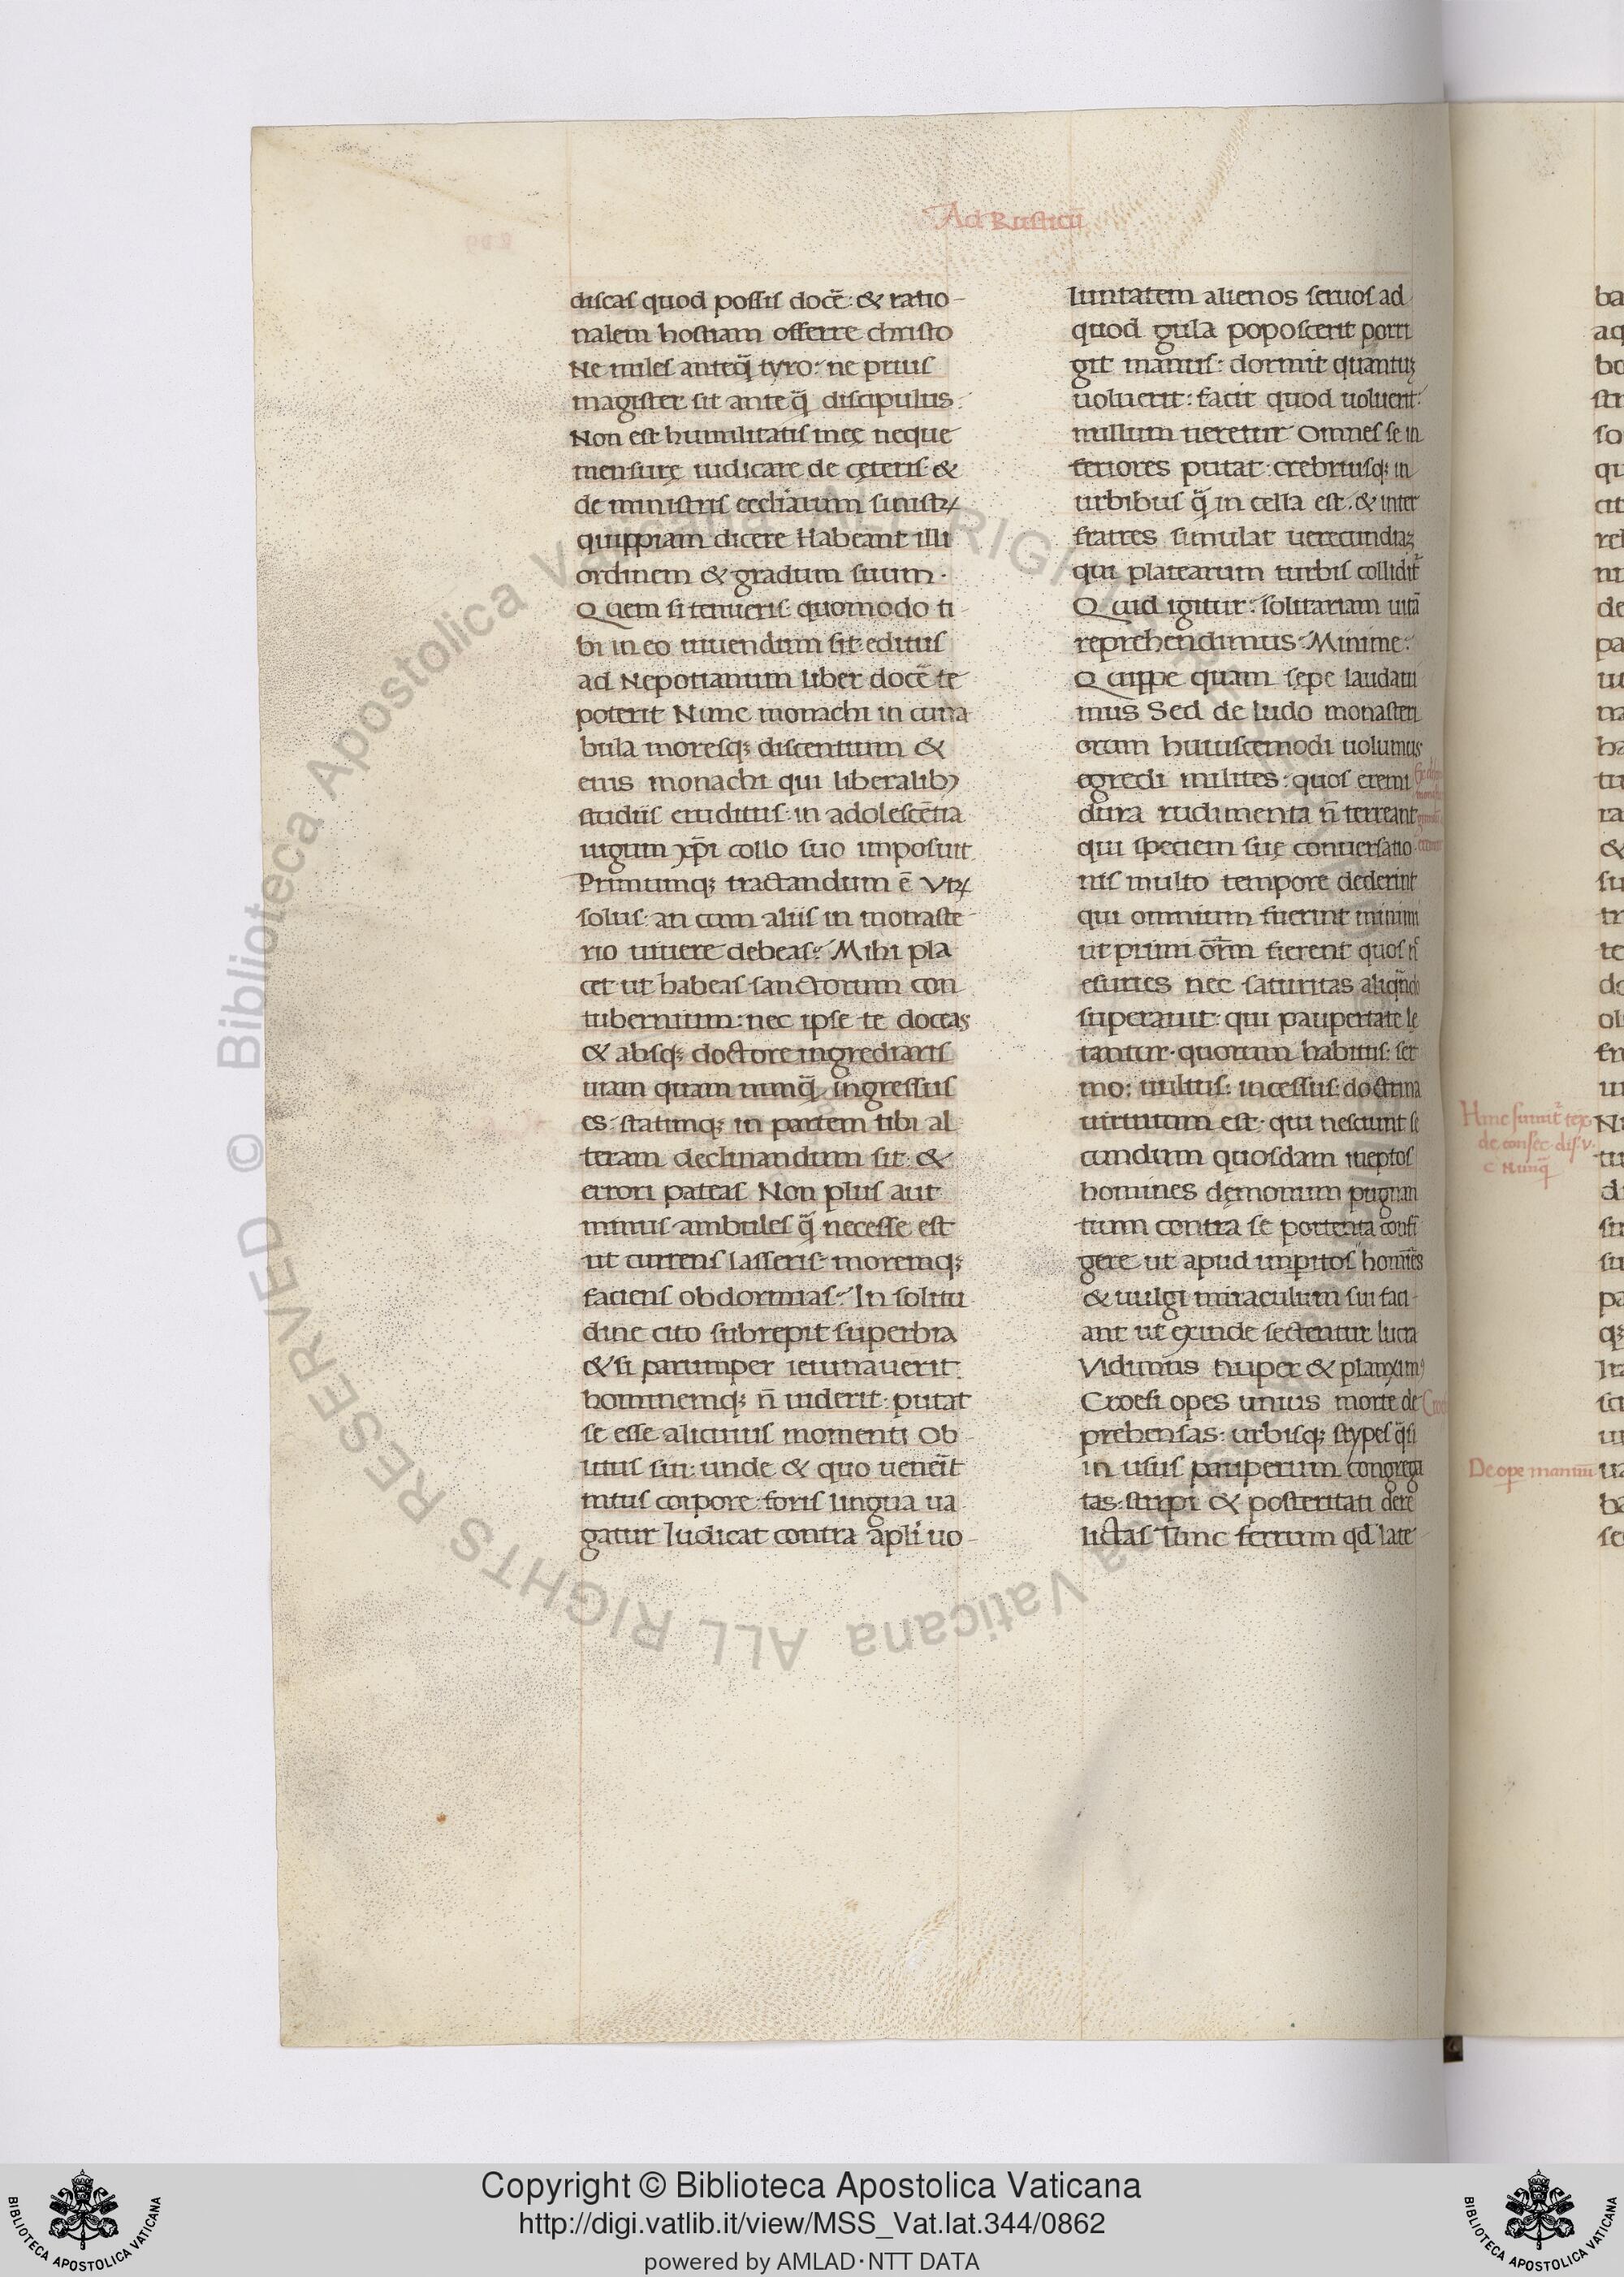 Ad Rusticū
discas quod possis docē: & ratio-
nalem hostiam offerre christo
Ne miles anteq̄ tyro: ne prius
magister sit ante q̄ discipulus:
Non est humilitatis meę neque
mensurę iudicare de cęteris: &
de ministris eccliarum sinistrꝝ
quippiam dicere Habeant illi
ordinem & gradum suum.
Quem si tenueris: quomodo ti
bi in eo uiuendum sit: editus
ad Nepotianum liber docē te
poterit Nunc monachi in cuna
bula moresq; discentium &
eius monachi qui liberalibꝰ
studiis eruditus: in adolescētia
iugum xp̄i collo suo imposuit
Primumq; tractandum ē Vtrꝝ
solus: an cum aliis in monaste-
rio uiuere debeas: Mihi pla
cet ut habeas sanctorum con
tubernium: nec ipse te doceas
& absq; doctore ingrediaris
uiam quam nunq̄ ingressus
es: statimq; in partem tibi al
teram declinandum sit: &
errori pateas Non plus aut
minus ambules q̄ necesse est
ut currens lasseris: moremq;
faciens obdormias: In solitu
dine cito subrepit superbia
& si parumper ieiunauerit:
hominemq; n̄ uiderit: putat
se esse alicuius momenti Ob-
litus sui: unde & quo uenerit
intus corpore: foris lingua ua
gatur Iudicat contra apli uo-
luntatem alienos seruos ad
quod gula poposcerit porri
git manus: dormit quantuꝫ
uoluerit: facit quod uoluerit:
nullum ueretur Omnes se in
feriores putat: crebriusq; in
urbibus q̄ in cella est. & inter
fratres simulat uerecundiaꝫ
qui platearum turbis collidit᷑
Quid igitur: solitariam uitā
reprehendimus: Minime:
Quippe quam sępe laudaui
mus Sed de ludo monasteri
orum huiuscemodi uolumus
egredi milites: quos eremi
dura rudimenta n̄ terreant
qui speciem suę conuersatio
nis multo tempore dederint
qui omnium fuerint minimi
ut primi om̄m fierent quos n̄
esuries nec saturitas aliqn̄do
superauit: qui paupertate lę
tantur. quorum habitus: ser
mo: uultus: incessus: doctrina
uirtutum est. qui nesciunt se
cundum quosdam ineptos
homines dęmonum pugnan
tium contra se portenta confi
gere ut apud impitos homīes
& uulgi miraculum sui faci-
ant ut exinde sectentur lucra
Vidimus nuper & planximꝰ
Croesi opes unius morte de
prehensas: urbisq; stypes q̄si
in usus pauperum congrega
tas: stirpi & posteritati dere
lictas Tunc ferrum qd late
Hinc sumit᷑ tex.
de consec. dis. v.
c Nunq̄
De ope manuū
© Biblioteca Apostolica Vaticana ALL RIGHTS RESERVED
Copyright © Biblioteca Apostolica Vaticana
http://digi.vatlib.it/view/MSS_Vat.lat.344/0862
powered by AMLAD·NTT DATA
BIBLIOTECA APOSTOLICA VATICANA
BIBLIOTECA APOSTOLICA VATICANA